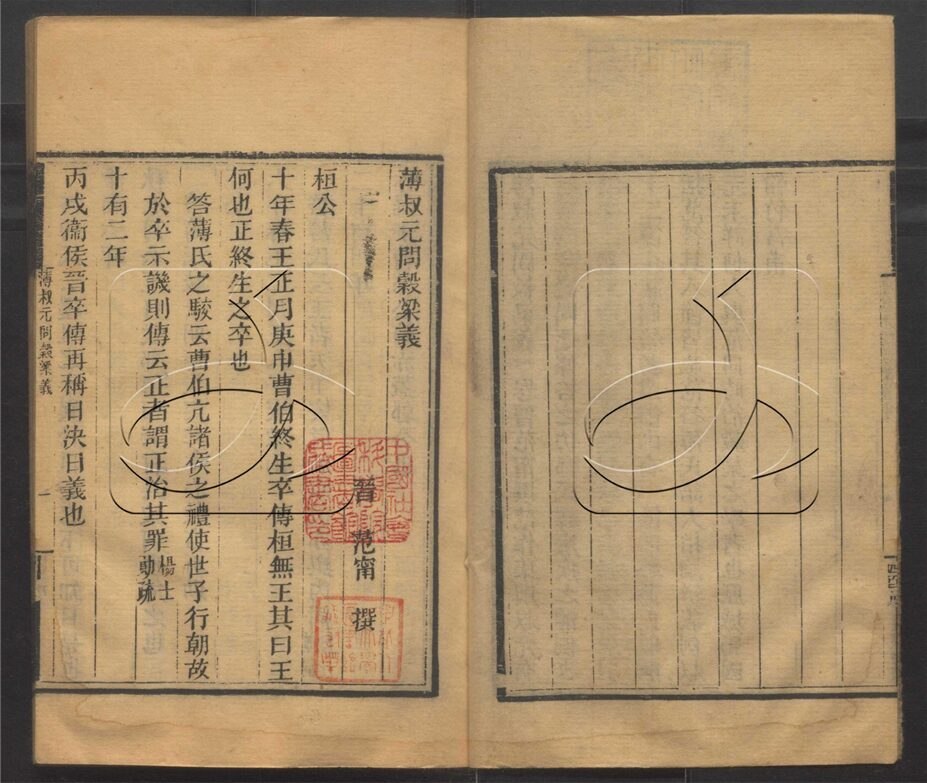 薄叔元問穀梁義
晉 范甯 撰
桓公
十年春王正月庚申曹伯終生卒傳桓無王其曰王
何也正終生之卒也
答薄氏之駮云曹伯亢諸侯之禮使世子行朝故
於卒示譏則傳云正者謂正治其罪楊士勛疏
十有二年
丙戌衞侯晉卒傳再稱日決日義也
薄叔元問穀梁義
一